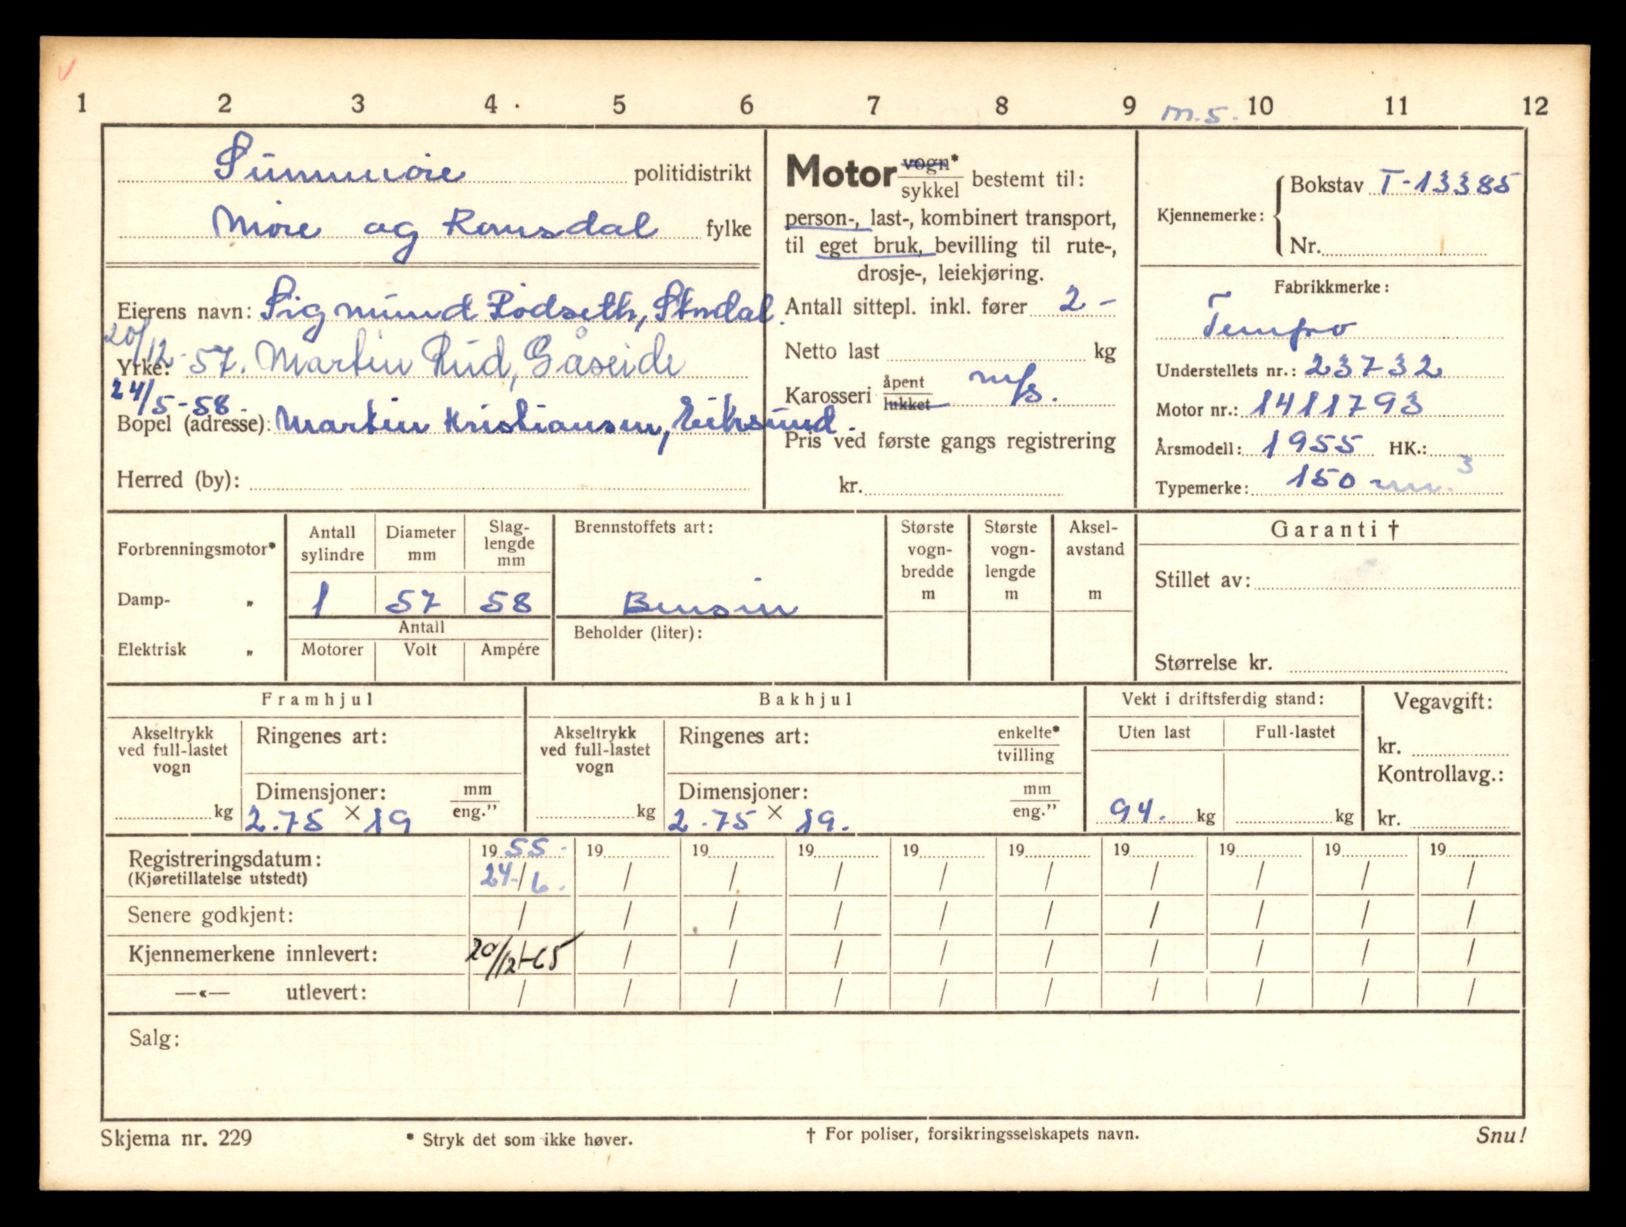 1 2 3 4 5 6 7 8 9 m.s. 10 11 12
Sunnmøre politidistrikt
Møre og Romsdal fylke
Eierens navn: Sigmund Rødseth, Stordal.
20/12-57. Martin Rud, Gåseide
Yrke:
24/5-58. Martin Kristiansen, Eiksund.
Bopel (adresse):
Herred (by):
Motor vogn* sykkel bestemt til:
person-, last-, kombinert transport,
til eget bruk, bevilling til rute-,
drosje-, leiekjøring.
Antall sittepl. inkl. fører 2 -
Netto last kg
Karosseri åpent lukket m/s.
Pris ved første gangs registrering
kr.
Kjennemerke: Bokstav T-13385
Nr.
Fabrikkmerke:
Tempo
Understellets nr.: 23732
Motor nr.: 1411793
Årsmodell: 1955 HK.:
Typemerke: 150 m.3
Forbrenningsmotor*
Damp- „
Elektrisk „
Antall sylindre 1
Diameter mm 57
Slag-lengde mm 58
Antall
Motorer Volt Ampére
Brennstoffets art:
Bensin
Beholder (liter):
Største vogn-bredde m
Største vogn-lengde m
Aksel-avstand m
Garanti †
Stillet av:
Størrelse kr.
Framhjul
Akseltrykk ved full-lastet vogn kg
Ringenes art:
Dimensjoner: mm eng.”
2.75 × 19
Bakhjul
Akseltrykk ved full-lastet vogn kg
Ringenes art: enkelte* tvilling
Dimensjoner: mm eng.”
2.75 × 19.
Vekt i driftsferdig stand:
Uten last Full-lastet
94. kg kg
Vegavgift:
kr.
Kontrollavg.:
kr.
Registreringsdatum: 1955- 19 19 19 19 19 19 19 19 19
(Kjøretillatelse utstedt) 24-/6. / / / / / / / / /
Senere godkjent: / / / / / / / / / /
Kjennemerkene innlevert: 20/12-65 / / / / / / / / /
—«— utlevert: / / / / / / / / / /
Salg:
Skjema nr. 229 * Stryk det som ikke høver. † For poliser, forsikringsselskapets navn. Snu!